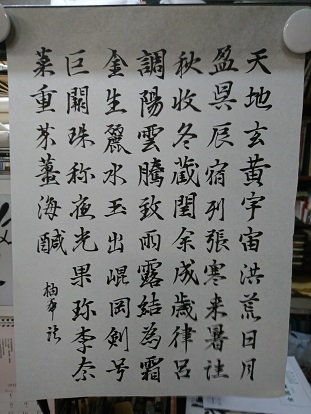 天地玄黄宇宙洪荒日月
盈昃辰宿列張寒来暑往
秋收冬蔵閏余成歳律呂
調陽雲騰致雨露結為霜
金生麗水玉出崐岡剣号
巨闕珠称夜光果珎李奈
菜重芥薑海鹹